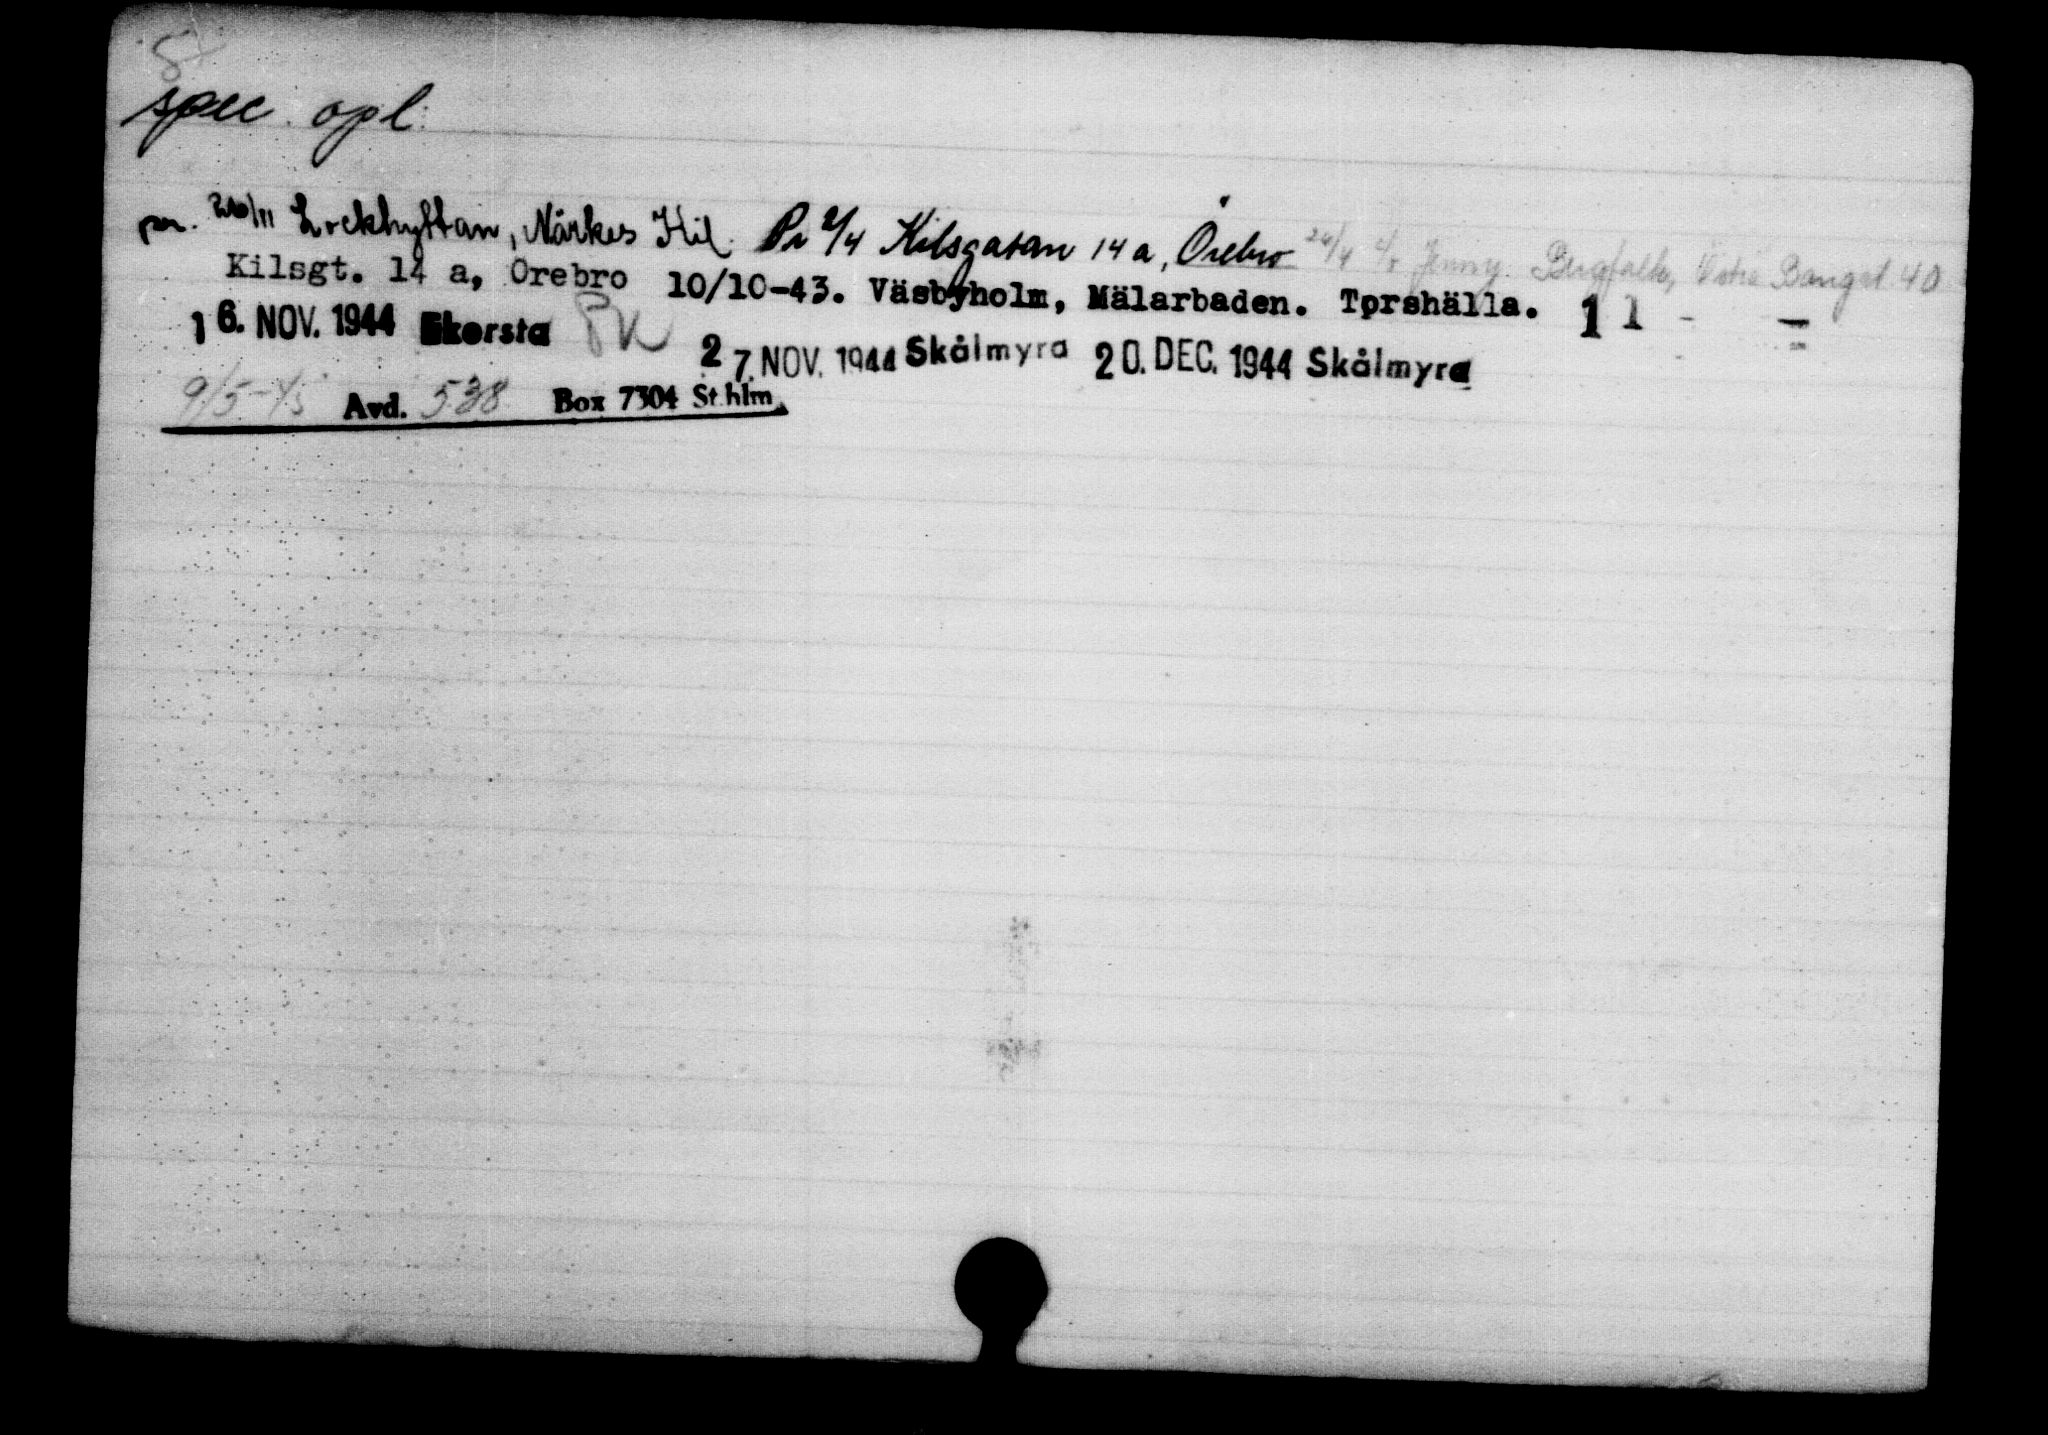 spec. opl.
pr. 26/11 Lockhyttan, Närkes Kil. Pr 2/4 Kilsgatan 14 a, Örebro 24/4 c/o Jenny Bergfalk, Östra Bangat. 40
Kilsgt. 14 a, Örebro 10/10-43. Väsbyholm, Mälarbaden. Torshälla. 1 1 -
16. NOV. 1944 Ekorsta PK 27. NOV. 1944 Skålmyra 20. DEC. 1944 Skålmyra
9/5-45 Avd. 538 Box 7304 St.hlm.